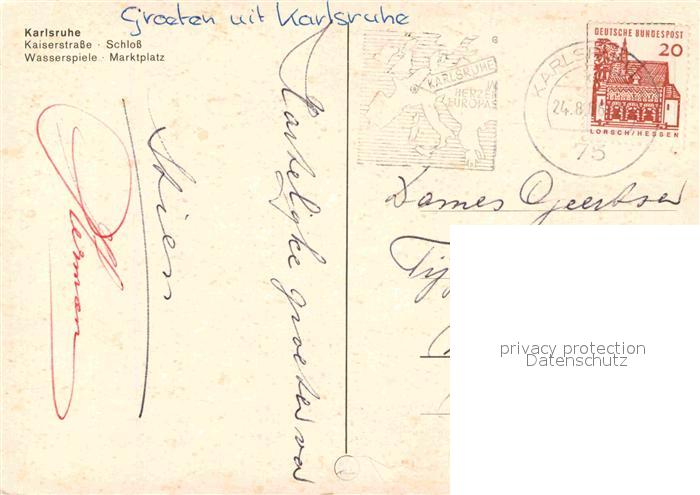 Groeten uit Karlsruhe
Karlsruhe
Kaiserstraße · Schloß
Wasserspiele · Marktplatz
KARLSRUHE
IM
HERZEN
EUROPAS
KARLSRUHE
24.8.
75
DEUTSCHE BUNDESPOST
20
LORSCH/HESSEN
Hartelijke groeten van
Stien
Herman
Dames Geertsen
privacy protection
Datenschutz